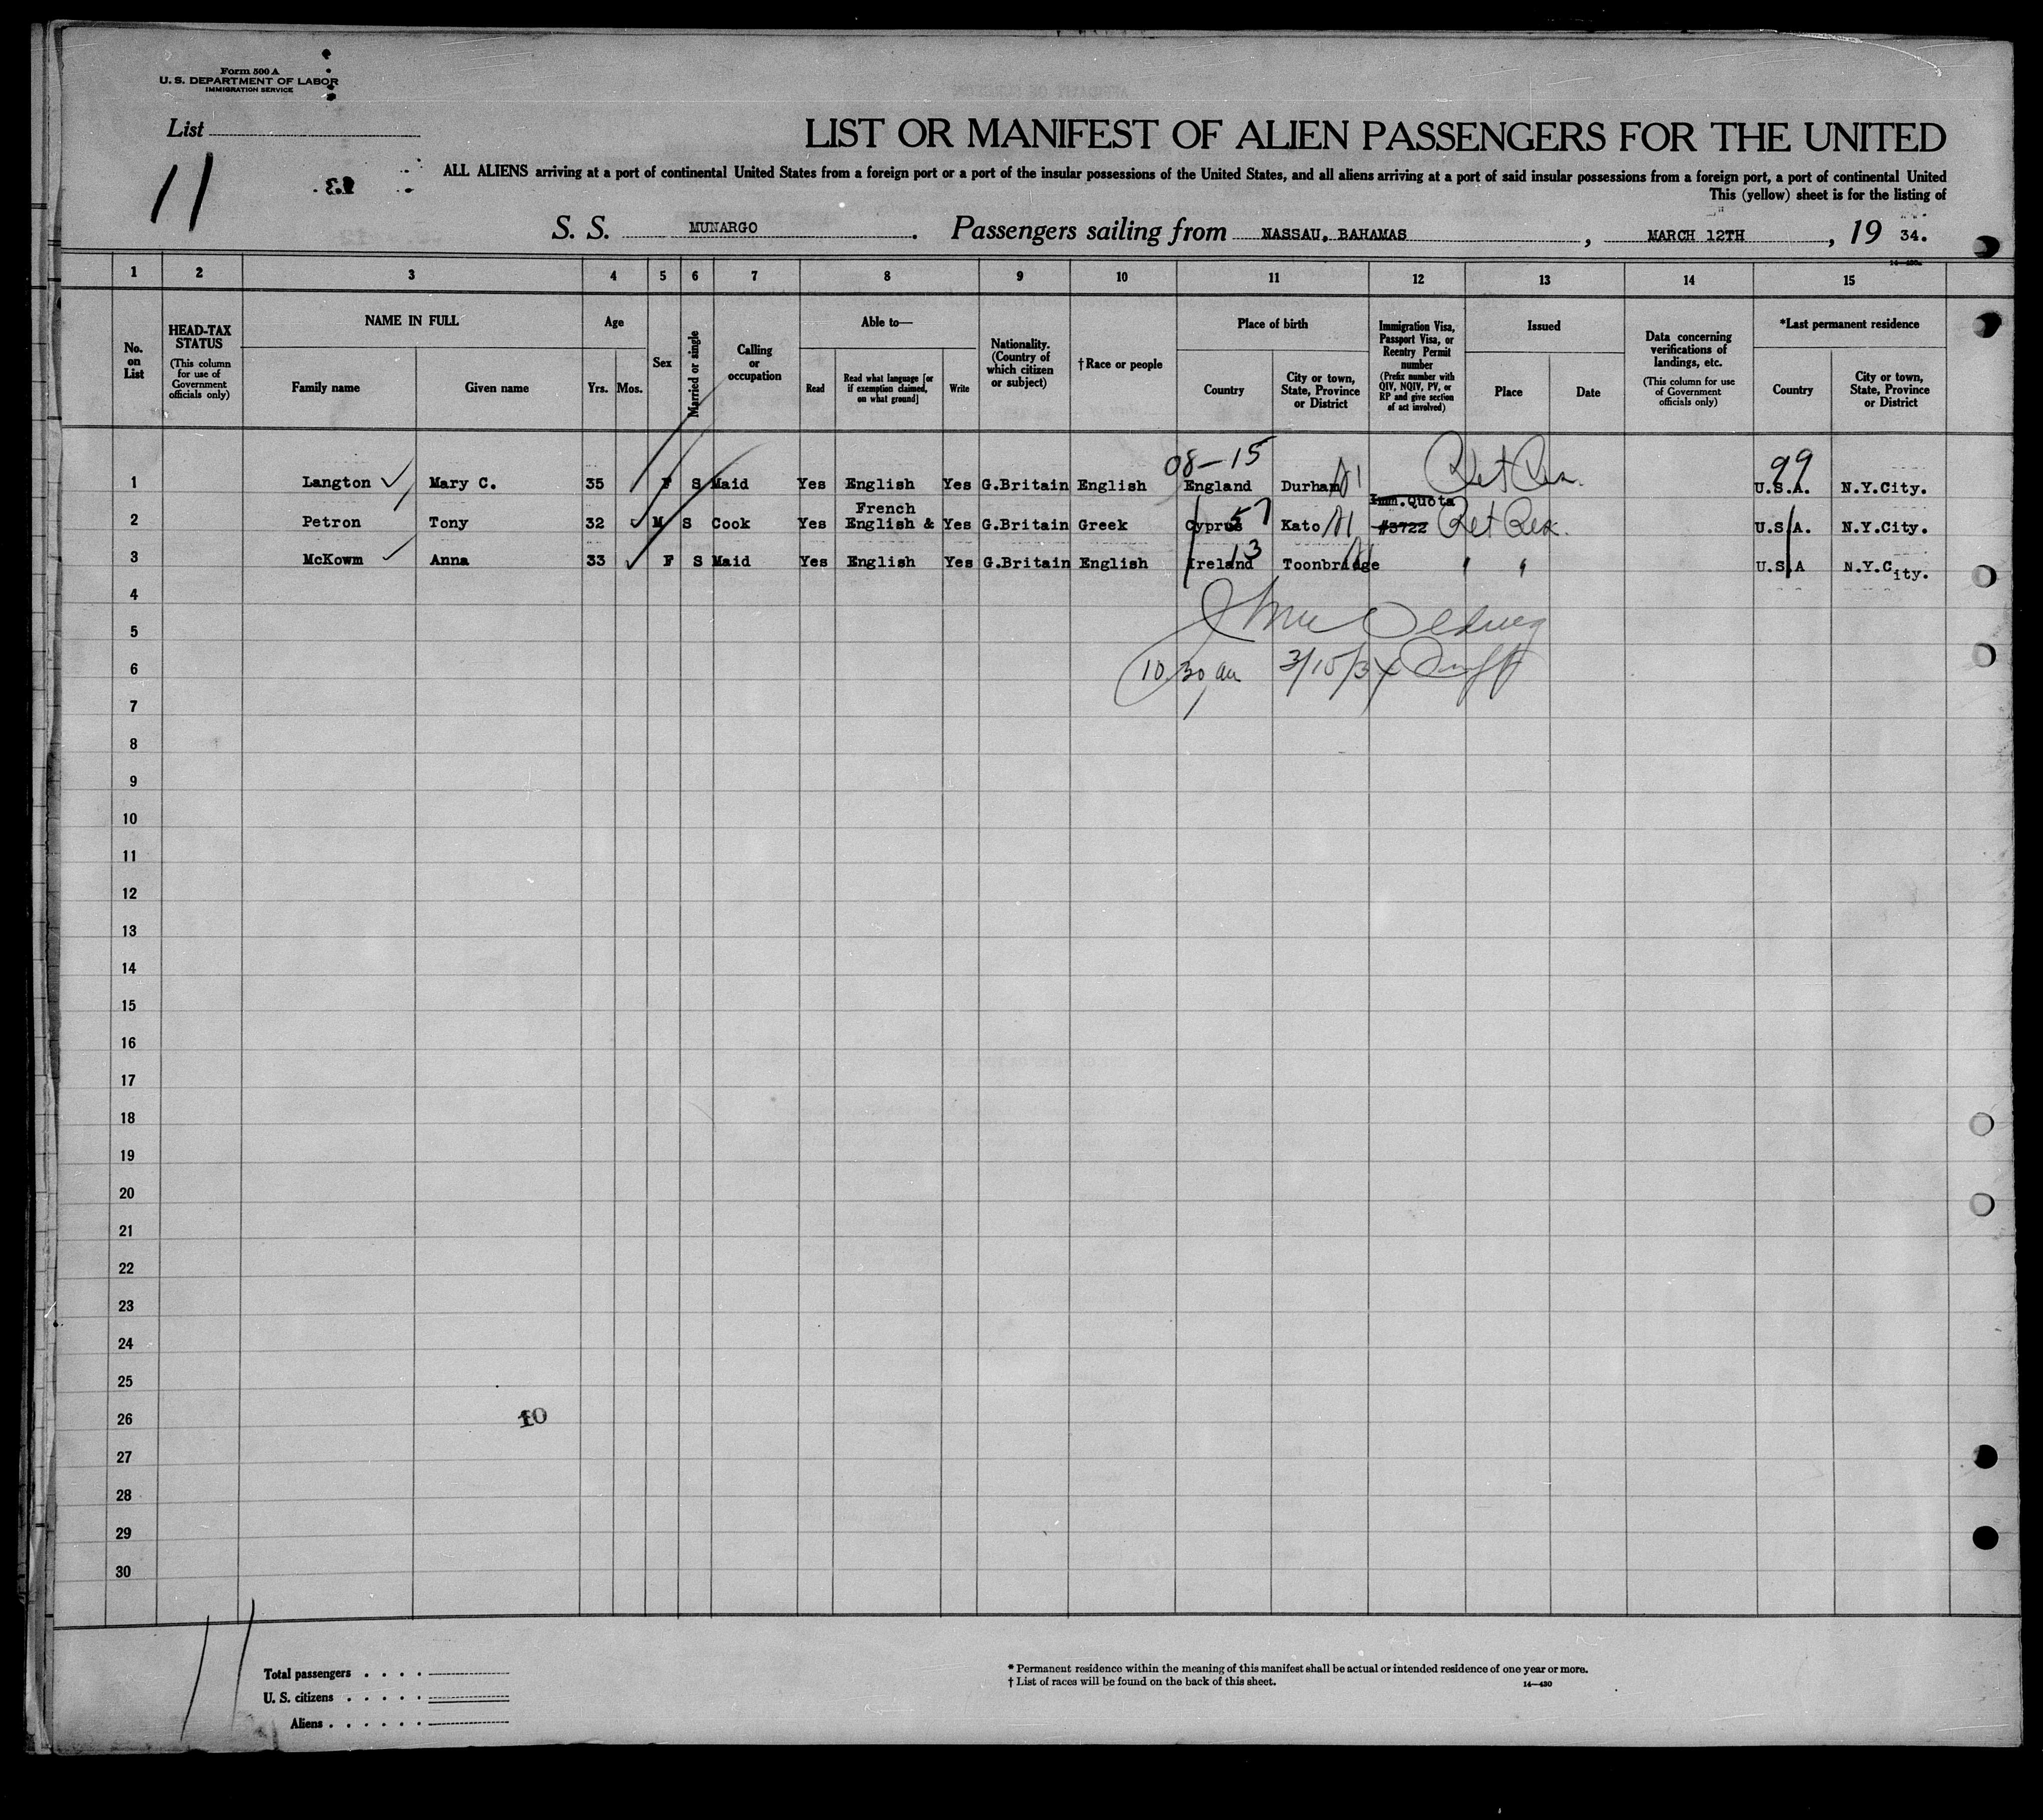 Form 500 A
U. S. DEPARTMENT OF LABOR
IMMIGRATION SERVICE
List
11
LIST OR MANIFEST OF ALIEN PASSENGERS FOR THE UNITED
ALL ALIENS arriving at a port of continental United States from a foreign port or a port of the insular possessions of the United States, and all aliens arriving at a port of said insular possessions from a foreign port, a port of continental United
This (yellow) sheet is for the listing of
S. S. MUNARGO. Passengers sailing from NASSAU, BAHAMAS, MARCH 12TH, 19 34.
14—430
1 2 3 4 5 6 7 8 9 10 11 12 13 14 15
No. on List
HEAD-TAX STATUS
(This column for use of Government officials only)
NAME IN FULL
Family name
Given name
Age
Yrs. Mos.
Sex
Married or single
Calling or occupation
Able to—
Read
Read what language [or if exemption claimed, on what ground]
Write
Nationality. (Country of which citizen or subject)
†Race or people
Place of birth
Country
City or town, State, Province or District
Immigration Visa, Passport Visa, or Reentry Permit number
(Prefix number with QIV, NQIV, PV, or RP and give section of act involved)
Issued
Place
Date
Data concerning verifications of landings, etc.
(This column for use of Government officials only)
*Last permanent residence
Country
City or town, State, Province or District
08-15 99
1 Langton Mary C. 35 F S Maid Yes English Yes G.Britain English England Durham Ret Res. U.S.A. N.Y.City.
French Imm.Quota
2 Petron Tony 32 M S Cook Yes English & Yes G.Britain Greek Cyprus 57 Kato #3722 Ret Res. U.S.A. N.Y.City.
3 McKowm Anna 33 F S Maid Yes English Yes G.Britain English Ireland 13 Toonbridge U.S.A N.Y.City.
4
5
6 10 30 am 3/15/34
7
8
9
10
11
12
13
14
15
16
17
18
19
20
21
22
23
24
25
26 10
27
28
29
30
11
Total passengers . . . .
U. S. citizens . . . . .
Aliens . . . . . .
* Permanent residence within the meaning of this manifest shall be actual or intended residence of one year or more.
† List of races will be found on the back of this sheet.
14—430